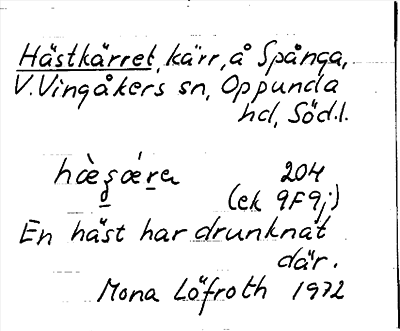 Hästkärret, kärr, å Spånga,
V. Vingåkers sn, Oppunda
hd, Söd.l.
204
(ek 9F9j)
En häst har drunknat
där.
Mona Löfroth 1972